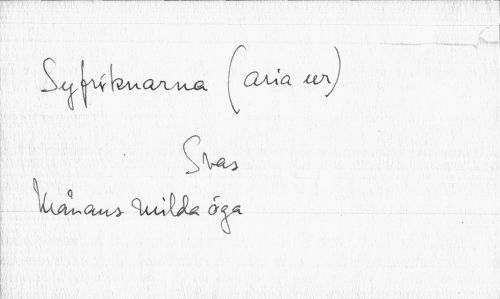 Syfröknarna (aria ur)
Svas
Månans milda öga